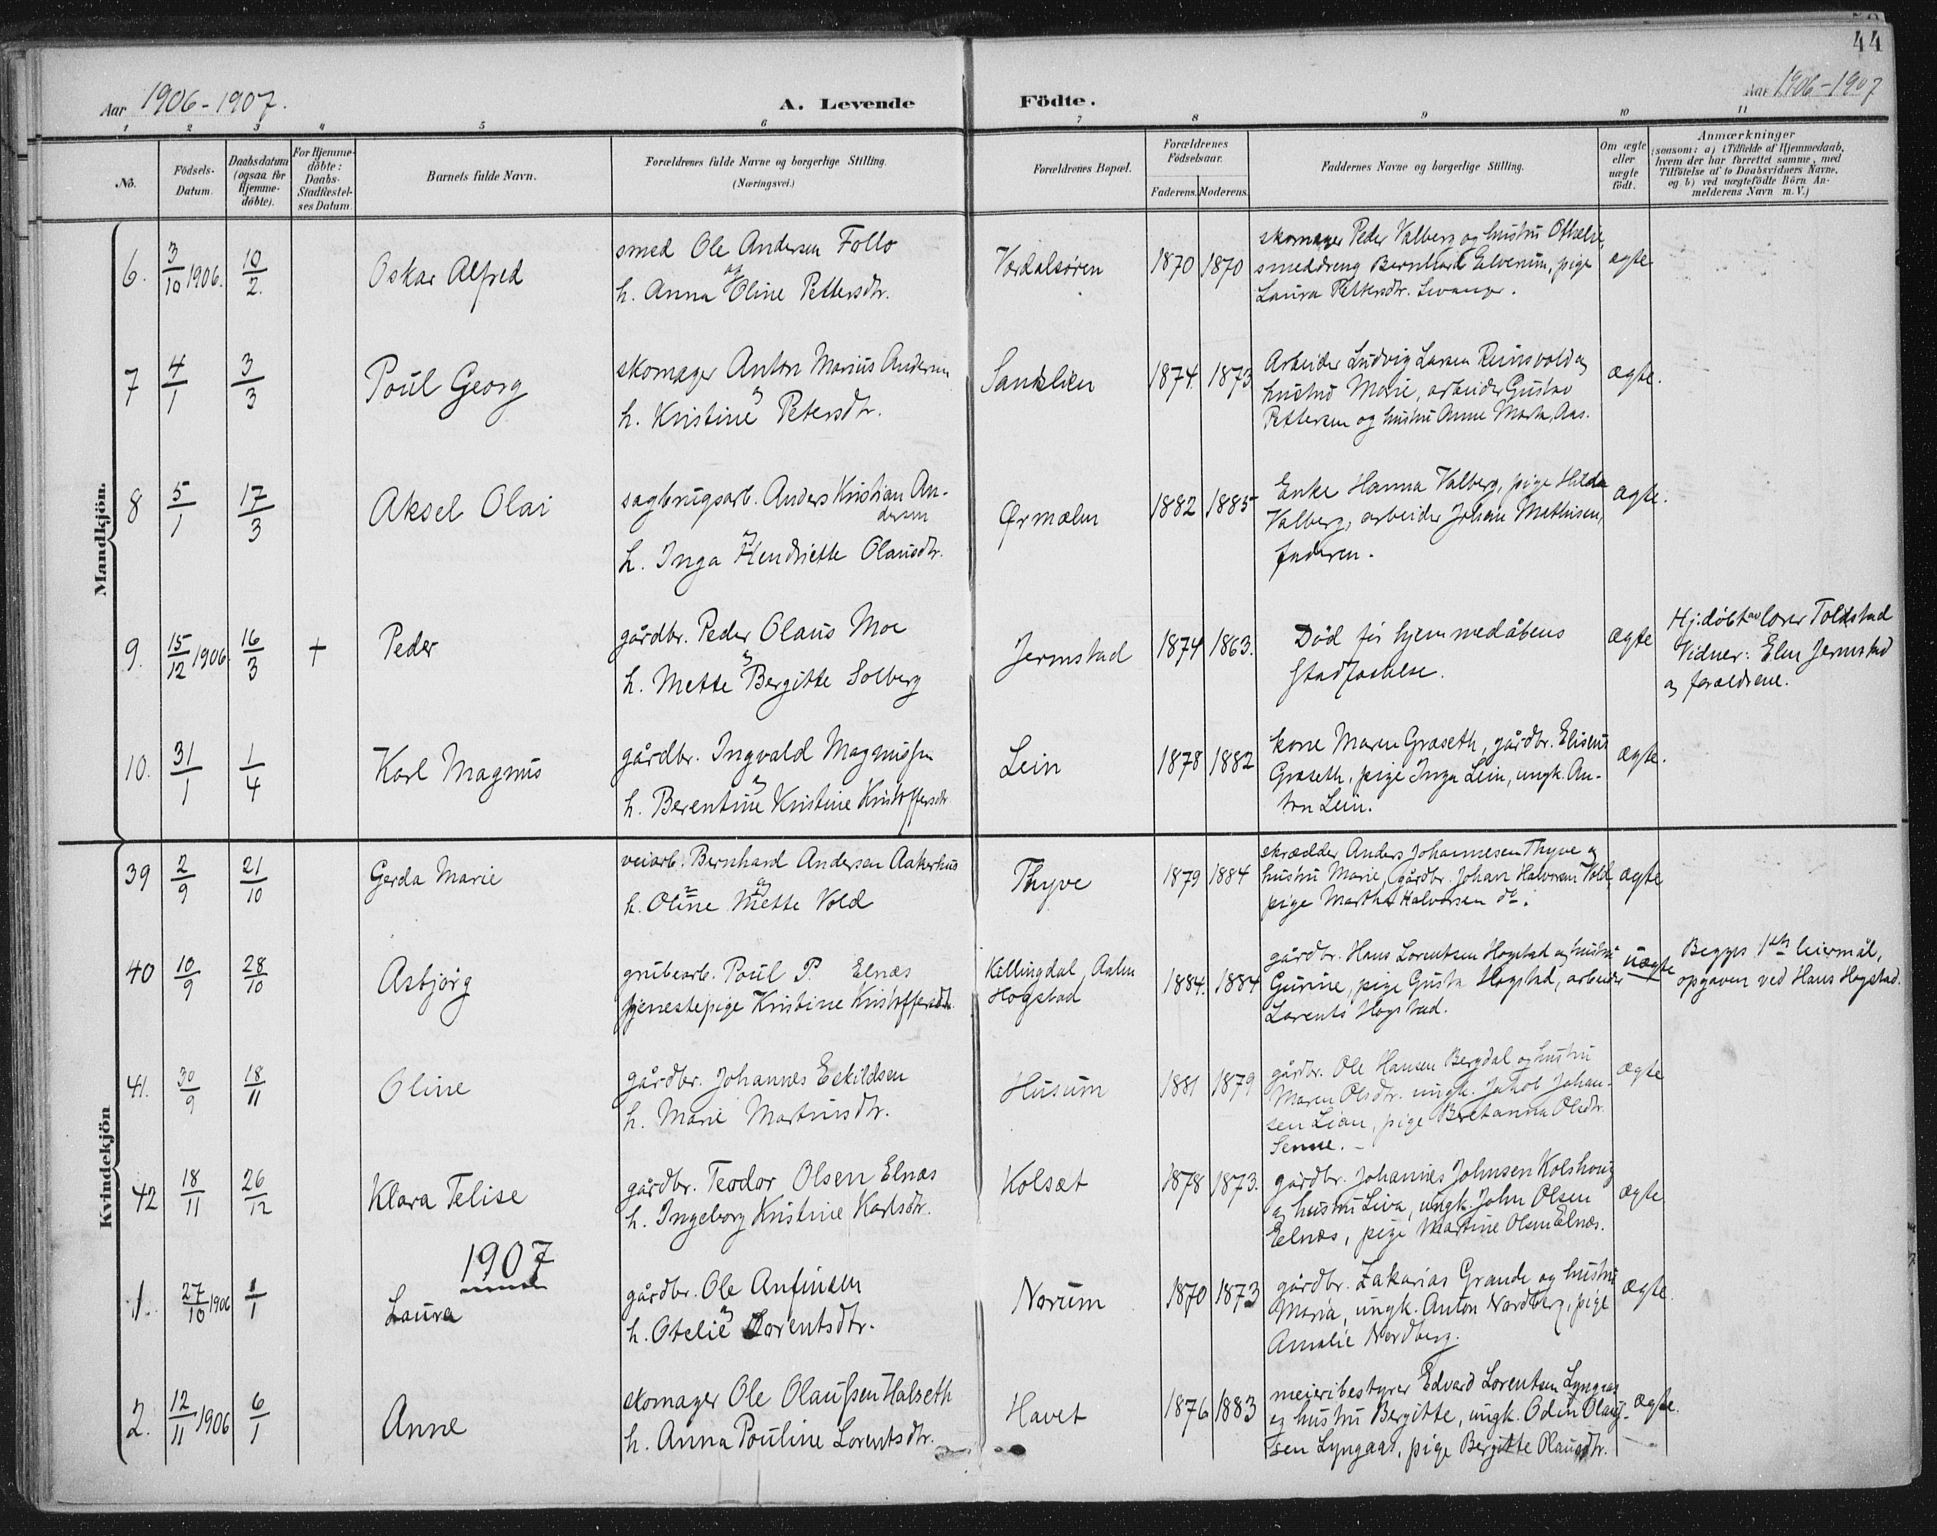 44
Aar 1906-1907.
A. Levende Födte.
Aar 1906-1907
1 2 3 4 5 6 7 8 9 10 11
No.
Födsels-Datum.
Daabsdatum (ogsaa for Hjemme-döbte).
For Hjemme-döbte: Daabs-Stadfæstel-ses Datum
Barnets fulde Navn.
Forældrenes fulde Navne og borgerlige Stilling.
(Næringsvei.)
Forældrenes Bopæl.
Forældrenes Födselsaar.
Faderens. Moderens.
Faddernes Navne og borgerlige Stilling.
Om ægte eller uægte födt.
Anmærkninger
(saasom: a) i Tilfælde af Hjemmedaab,
hvem der har forrettet samme, med
Tilföielse af to Daabsvidners Navne,
og b) ved uægtefödte Börn An-
melderens Navn m. V.)
Mandkjön.
6. 3/10 1906. 10/2. Oskar Alfred
smed Ole Andersen Follo
og
h. Anna Oline Pettersdtr.
Værdalsøren 1870 1870
skomager Peder Valberg og hustru
smeddreng Bernhard Elverum, pige
Laura Pettersdtr. Levanger.
ægte
7 4/1 3/3 Poul Georg
skomager Anton Marius Andersen
og
h. Kristine Petersdtr.
Sandslien 1874. 1873
Arbeider Ludvig Larsen Reinsvold og
hustru Marie, arbeider Gustav
Pettersen og hustru Anne Marta Aas.
ægte.
8 5/1 17/3 Aksel Olai
sagbrugsarb. Anders Kristian An-
dersen
og
h. Inga Hendriette Olausdtr.
Ørmælen 1882 1885
Enke Hanna Valberg, pige Hilda
Valberg, arbeider Johan Mathisen,
faderen.
ægte.
9. 15/12 1906 16/3 + Peder
gårdbr. Peder Olaus Moe
og
h. Mette Bergitte Solberg
Jermstad 1874 1863.
Død før hjemmedåbens
stadfæstelse.
ægte
Hj:døbt av lærer Toldstad
Vidner: Elen Jermstad
og forældrene.
10. 31/1 1/4 Karl Magnus
gårdbr. Ingvald Magnussen
og
h. Berentine Kristine Kristoffersdtr
Lein 1878 1882
kone Maren Græseth, gårdbr. Eliseus
Græseth, pige Inga Lein, ungk. An-
ton Lein.
ægte.
Kvindekjön
39 2/9 21/10 Gerda Marie
veiarb. Bernhard Andersen Aakerhus
og
h. Oline Mette Vold
Thyve 1879 1884
skrædder Anders Johannesen Thyve og
hustru Marie, gårdbr. Johan Halvorsen Vold
pige Martha Halvorsen do.
ægte
40 10/9 28/10 Asbjørg
grubearb. Poul P Elnæs
tjenestepige Kristine Kristoffersdtr.
Kellingdal, Aalen
Hogstad
1884. 1884
gårdbr. Hans Lorentsen Hogstad og hustru
Gurine, pige Gusta Hogstad, arbeider
Lorents Hogstad.
uægte
Begges 1ste leiermål,
opgaven ved Hans Hogstad.
41. 30/9 18/11 Oline
gårdbr. Johannes Eskildsen
h. Marie Martinusdtr.
Husum 1881 1879
gårdbr. Ole Hansen Bergdal og hustru
Maren Olsdtr. ungk. Jakob Johan-
sen Lian, pige Bretanna Olsdtr.
Senne. -
ægte
42 18/11 26/12 Klara Telise
gårdbr. Teodor Olsen Elnæs
h. Ingeborg Kristine Karlsdtr.
Kolsæt 1878 1873.
gårdbr. Johannes Johnsen Kolshoug
og hustru Liva, ungk. John Olsen
Eelnæs, pige Martine Olsen Elnæs.
ægte
1907
1. 27/10 1906 1/1 Laura
gårdbr. Ole Anfinsen
og
h. Otelie Lorentsdtr.
Norum 1870 1873
gårdbr. Zakarias Grande og hustru
Maria, ungk. Anton Nordberg, pige
Amalie Nordberg.
ægte.
2. 12/11 1906 6/1 Anne
skomager Ole Olaussen Halseth
h. Anna Pouline Lorentsdtr.
Havet 1876 1883
meieribestyrer Edvard Lorentsen Lyngaas
og hustru Bergitte, ungk. Odin Olaus-
sen Lyngaas, pige Bergitte Olausdtr.
ægte.